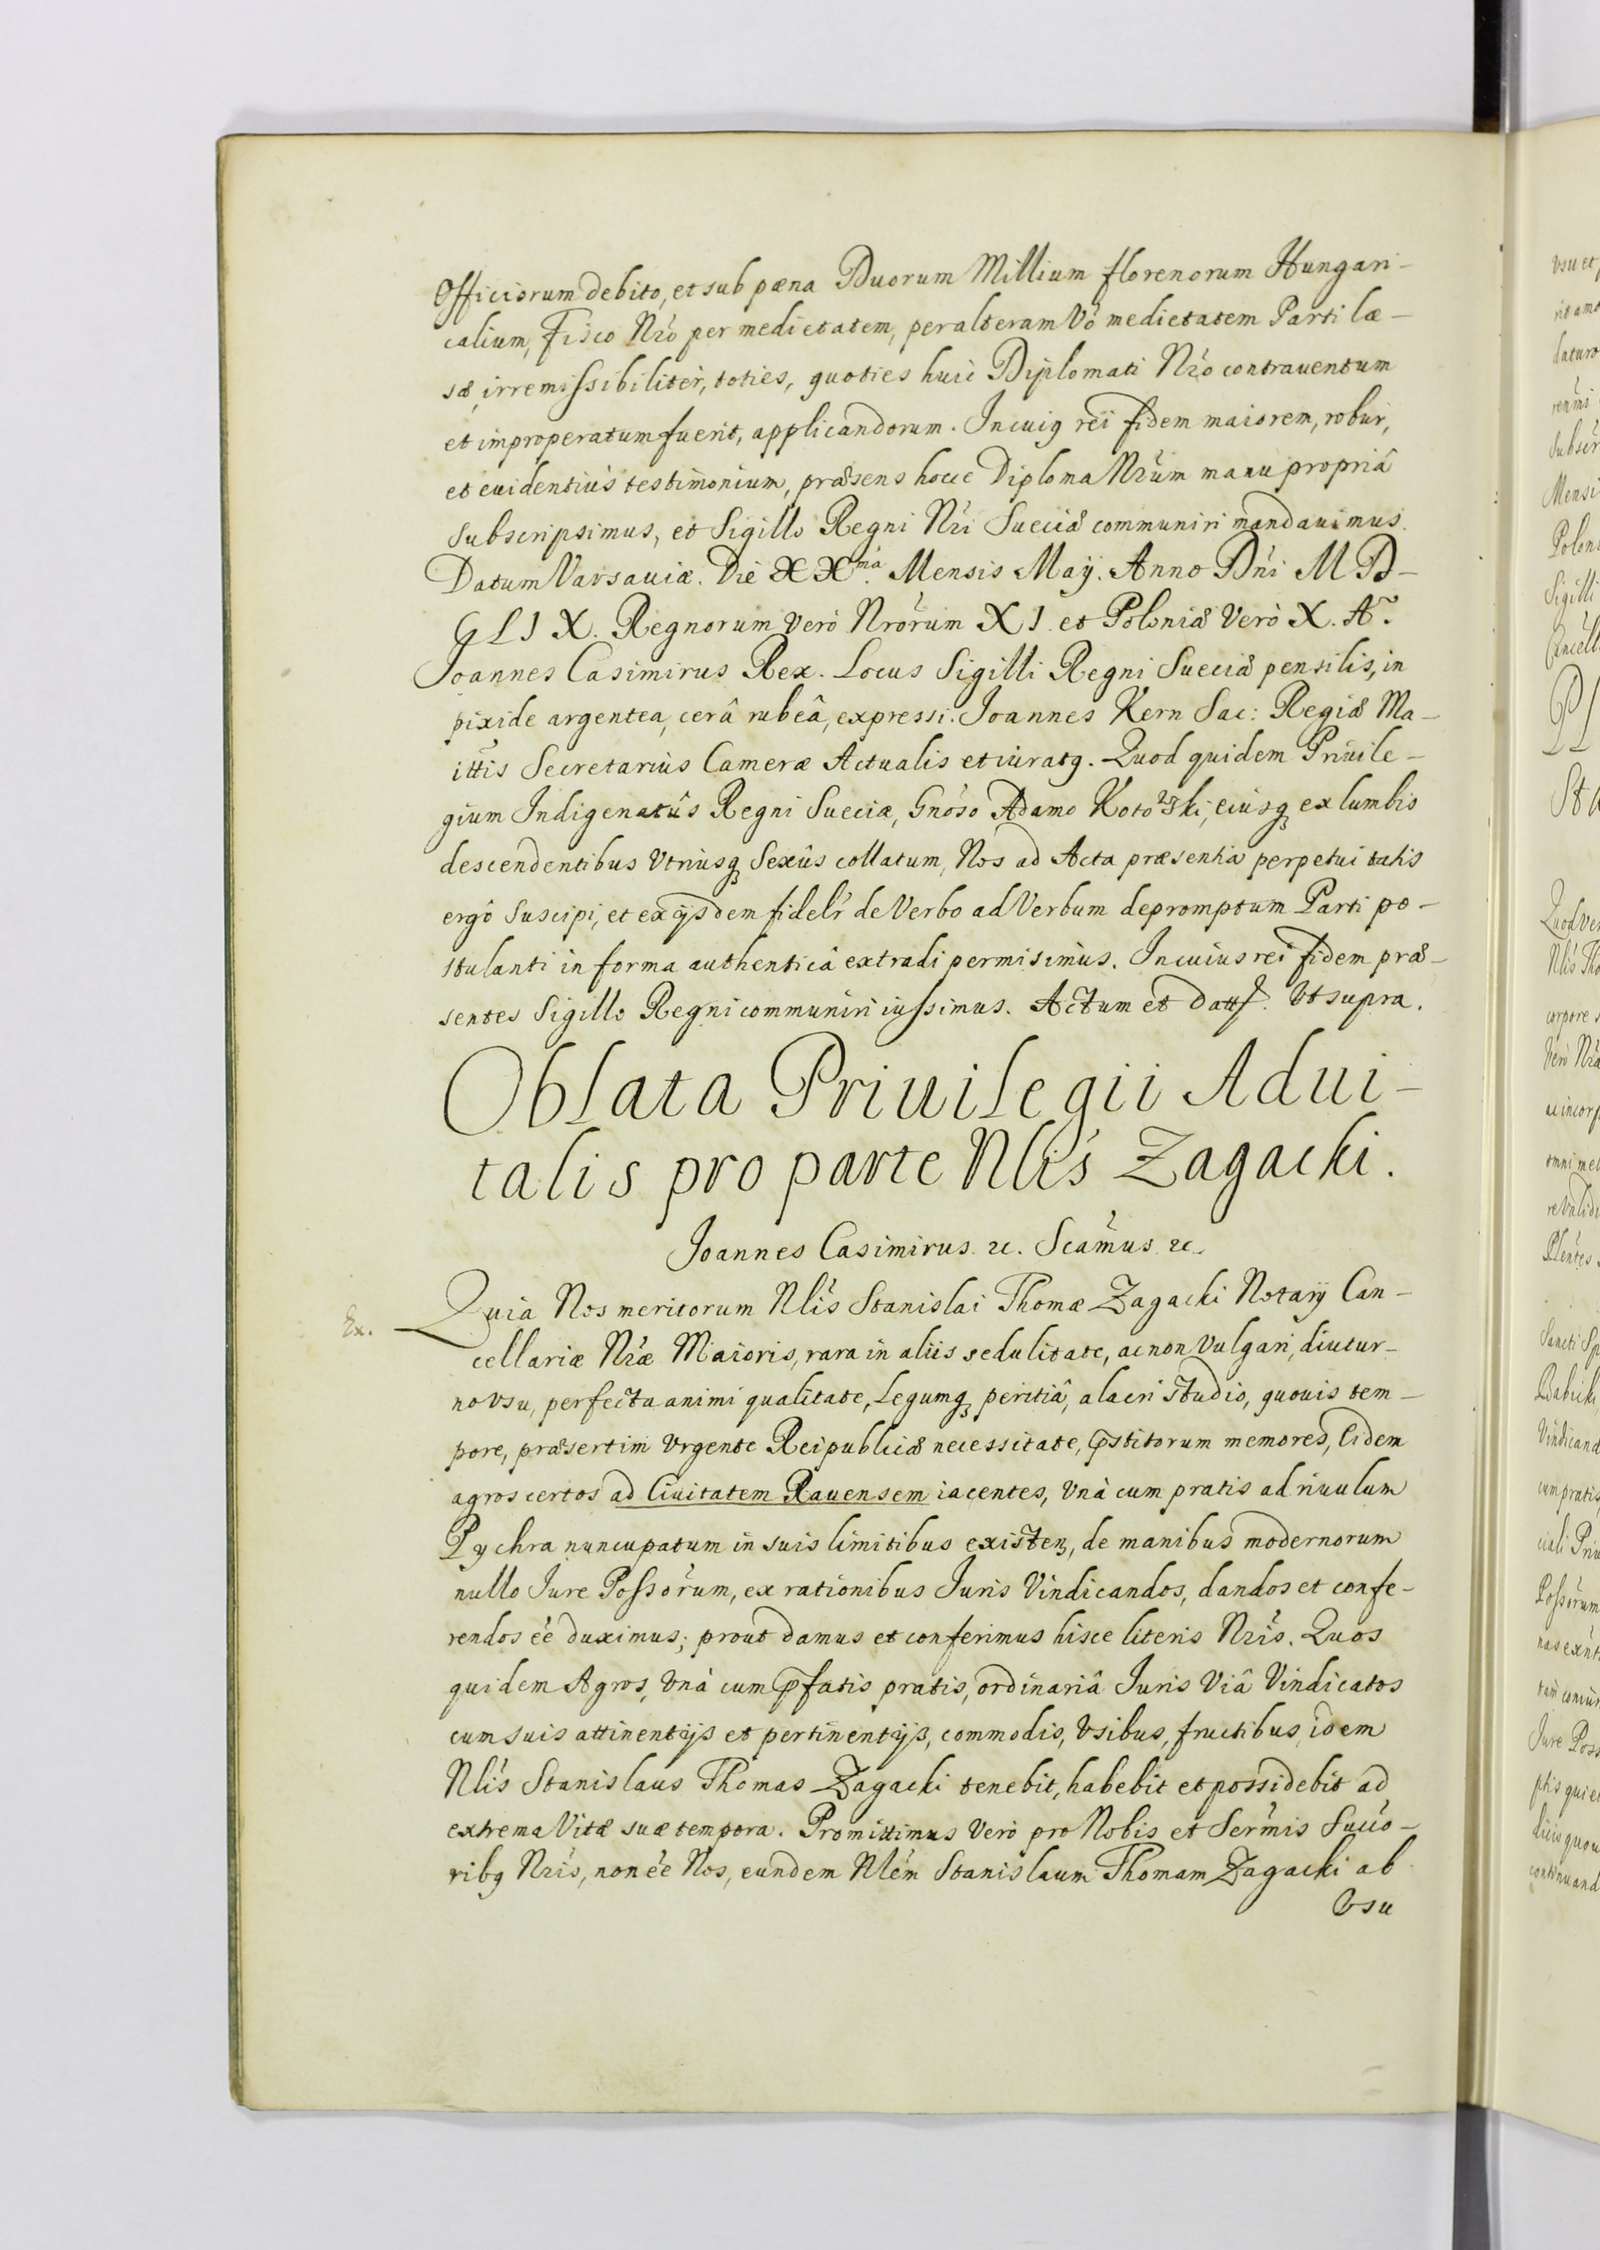 Officiorum debito, et sub pæna Duorum Millium florenorum Hungari-
calium, Fisco Nro per medietatem, per alteram Vo medietatem Parti læ-
sæ, irremissibiliter, toties, quoties huic Diplomati Nro contrauentum
et improperatum fuerit, applicandorum. In cuiq rei fidem maiorem, robur,
et euidentius testimonium, præsens hocce Diploma Nrum manu propriâ
subscripsimus, et Sigillo Regni Nri Sueciæ communiri mandauimus.
Datum Varsauiæ. Die XX ma. Mensis Maÿ. Anno Dni M D
C L I X. Regnorum vero Nrorum XI et Poloniæ Vero X. Ao.
Joannes Casimirus Rex. Locus Sigilli Regni Sueciæ pensilis, in
pixide argentea, cerâ rubeâ, expressi. Joannes Kern Sac: Regiæ Ma-
ittis Secretarius Cameræ Actualis et iuratq. Quod quidem Priuile-
gium Indigenatûs Regni Sueciæ, Gnoso Adamo Kotowski, eiusq ex lumbis
descendentibus Vtriusq Sexûs collatum, Nos ad Acta præsentia perpetui tatis
ergô suscipi, et ex ijsdem fidelr de Verbo ad Verbum depromptum Parti po-
stulanti in forma authentica extradi permisimus. In cuius rei fidem præ-
sentes Sigillo Regni communiri iussimus. Actum et Datt. Vt supra.
Oblata Priuilegii Adui-
talis pro parte Nlis Zagacki.
Joannes Casimirus &c. Scamus &c.
Ex.
Quia Nos meritorum Nlis Stanislai Thomæ Zagacki Notarij Can-
cellariæ Nræ Maioris, rara in aliis sedulitate, ac non Vulgari, diutur-
no vsu, perfecta animi qualitate, Legumq peritiâ, alacri studio, quouis tem-
pore, præsertim vrgente Reipublicæ necessitate, pstitorum memores, Eidem
agros certos ad Ciuitatem Rauensem iacentes, Vnà cum pratis ad riuulum
Pychra nuncupatum in suis limitibus existen, de manibus modernorum
nullo Jure Possorum, ex rationibus Juris Vindicandos, dandos et confe-
rendos ee duximus; prout damus et conferimus hisce literis Nris. Quos
quidem Agros, Vnà cum pfatis pratis, ordinariâ Juris Viâ Vindicatos
cum suis attinentijs et pertinentijs, commodis, Vsibus, fructibus, idem
Nlis Stanislaus Thomas Zagacki tenebit, habebit et possidebit ad
extrema Vitæ suæ tempora. Promittimus Vero pro Nobis et Sermis Succo-
ribq Nris, non ee Nos, eundem Nlem Stanislaum Thomam Zagacki ab
Vsu